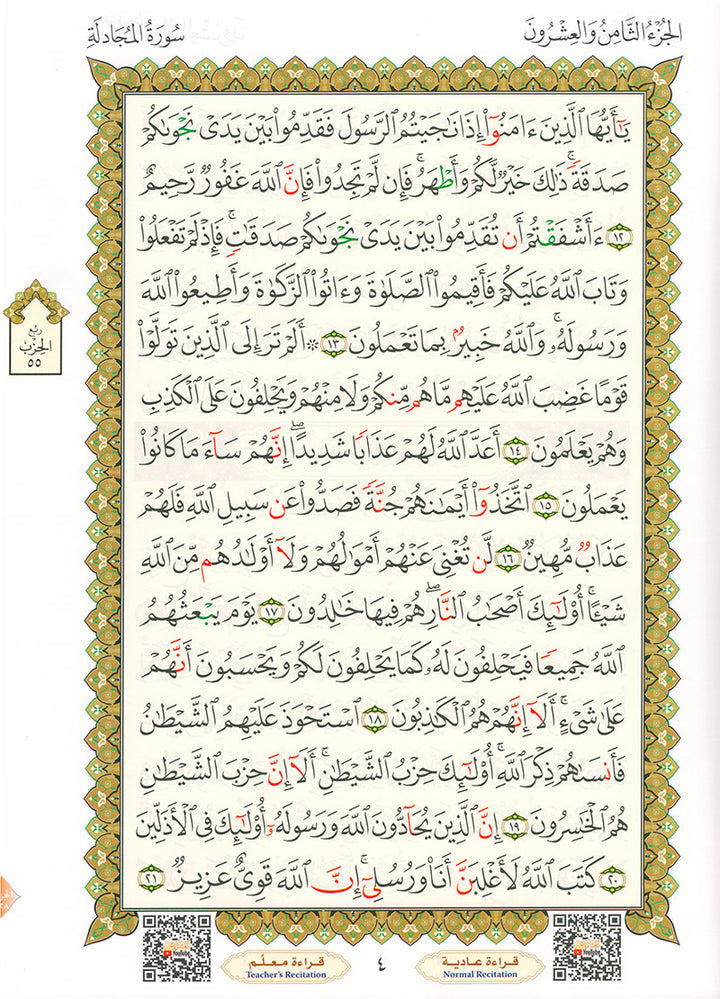 الجُزْءُ الثَّامِنُ وَالعِشْرُونَ
سُورَةُ المُجَادلَةِ
يَٰٓأَيُّهَا ٱلَّذِينَ ءَامَنُوٓا۟ إِذَا نَٰجَيْتُمُ ٱلرَّسُولَ فَقَدِّمُوا۟ بَيْنَ يَدَىْ نَجْوَىٰكُمْ
صَدَقَةً ۚ ذَٰلِكَ خَيْرٌ لَّكُمْ وَأَطْهَرُ ۚ فَإِن لَّمْ تَجِدُوا۟ فَإِنَّ ٱللَّهَ غَفُورٌ رَّحِيمٌ
١٢ ءَأَشْفَقْتُمْ أَن تُقَدِّمُوا۟ بَيْنَ يَدَىْ نَجْوَىٰكُمْ صَدَقَٰتٍ ۚ فَإِذْ لَمْ تَفْعَلُوا۟
وَتَابَ ٱللَّهُ عَلَيْكُمْ فَأَقِيمُوا۟ ٱلصَّلَوٰةَ وَءَاتُوا۟ ٱلزَّكَوٰةَ وَأَطِيعُوا۟ ٱللَّهَ
وَرَسُولَهُۥ ۚ وَٱللَّهُ خَبِيرٌۢ بِمَا تَعْمَلُونَ ١٣ ۞ أَلَمْ تَرَ إِلَى ٱلَّذِينَ تَوَلَّوْا۟
قَوْمًا غَضِبَ ٱللَّهُ عَلَيْهِم مَّا هُم مِّنكُمْ وَلَا مِنْهُمْ وَيَحْلِفُونَ عَلَى ٱلْكَذِبِ
وَهُمْ يَعْلَمُونَ ١٤ أَعَدَّ ٱللَّهُ لَهُمْ عَذَابًا شَدِيدًا ۖ إِنَّهُمْ سَآءَ مَا كَانُوا۟
يَعْمَلُونَ ١٥ ٱتَّخَذُوٓا۟ أَيْمَٰنَهُمْ جُنَّةً فَصَدُّوا۟ عَن سَبِيلِ ٱللَّهِ فَلَهُمْ
عَذَابٌ مُّهِينٌ ١٦ لَّن تُغْنِىَ عَنْهُمْ أَمْوَٰلُهُمْ وَلَآ أَوْلَٰدُهُم مِّنَ ٱللَّهِ
شَيْـًٔا ۚ أُو۟لَٰٓئِكَ أَصْحَٰبُ ٱلنَّارِ ۖ هُمْ فِيهَا خَٰلِدُونَ ١٧ يَوْمَ يَبْعَثُهُمُ
ٱللَّهُ جَمِيعًا فَيَحْلِفُونَ لَهُۥ كَمَا يَحْلِفُونَ لَكُمْ ۖ وَيَحْسَبُونَ أَنَّهُمْ
عَلَىٰ شَىْءٍ ۚ أَلَآ إِنَّهُمْ هُمُ ٱلْكَٰذِبُونَ ١٨ ٱسْتَحْوَذَ عَلَيْهِمُ ٱلشَّيْطَٰنُ
فَأَنسَىٰهُمْ ذِكْرَ ٱللَّهِ ۚ أُو۟لَٰٓئِكَ حِزْبُ ٱلشَّيْطَٰنِ ۚ أَلَآ إِنَّ حِزْبَ ٱلشَّيْطَٰنِ
هُمُ ٱلْخَٰسِرُونَ ١٩ إِنَّ ٱلَّذِينَ يُحَآدُّونَ ٱللَّهَ وَرَسُولَهُۥٓ أُو۟لَٰٓئِكَ فِى ٱلْأَذَلِّينَ
٢٠ كَتَبَ ٱللَّهُ لَأَغْلِبَنَّ أَنَا۠ وَرُسُلِىٓ ۚ إِنَّ ٱللَّهَ قَوِىٌّ عَزِيزٌ ٢١
ربع
الحزب
٥٥
قراءة عادية
Normal Recitation
٤
قراءة معلّم
Teacher's Recitation
YouTube
YouTube